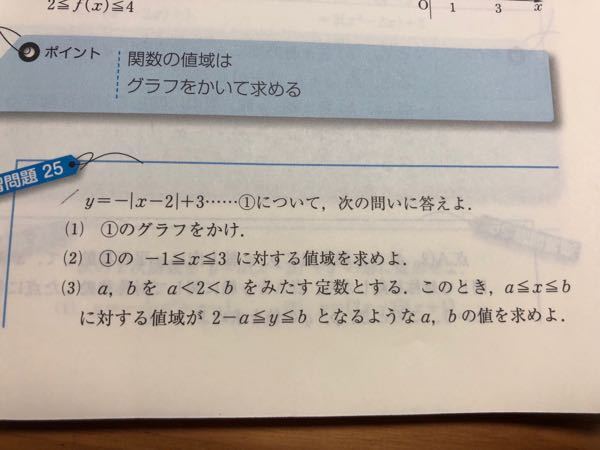 2≦f(x)≦4
O 1 3 x
ポイント
関数の値域は
グラフをかいて求める
習問題 25
y=-|x-2|+3……①について，次の問いに答えよ．
(1) ①のグラフをかけ．
(2) ①の -1≦x≦3 に対する値域を求めよ．
(3) a, b を a<2<b をみたす定数とする．このとき，a≦x≦b
に対する値域が 2-a≦y≦b となるような a, b の値を求めよ．